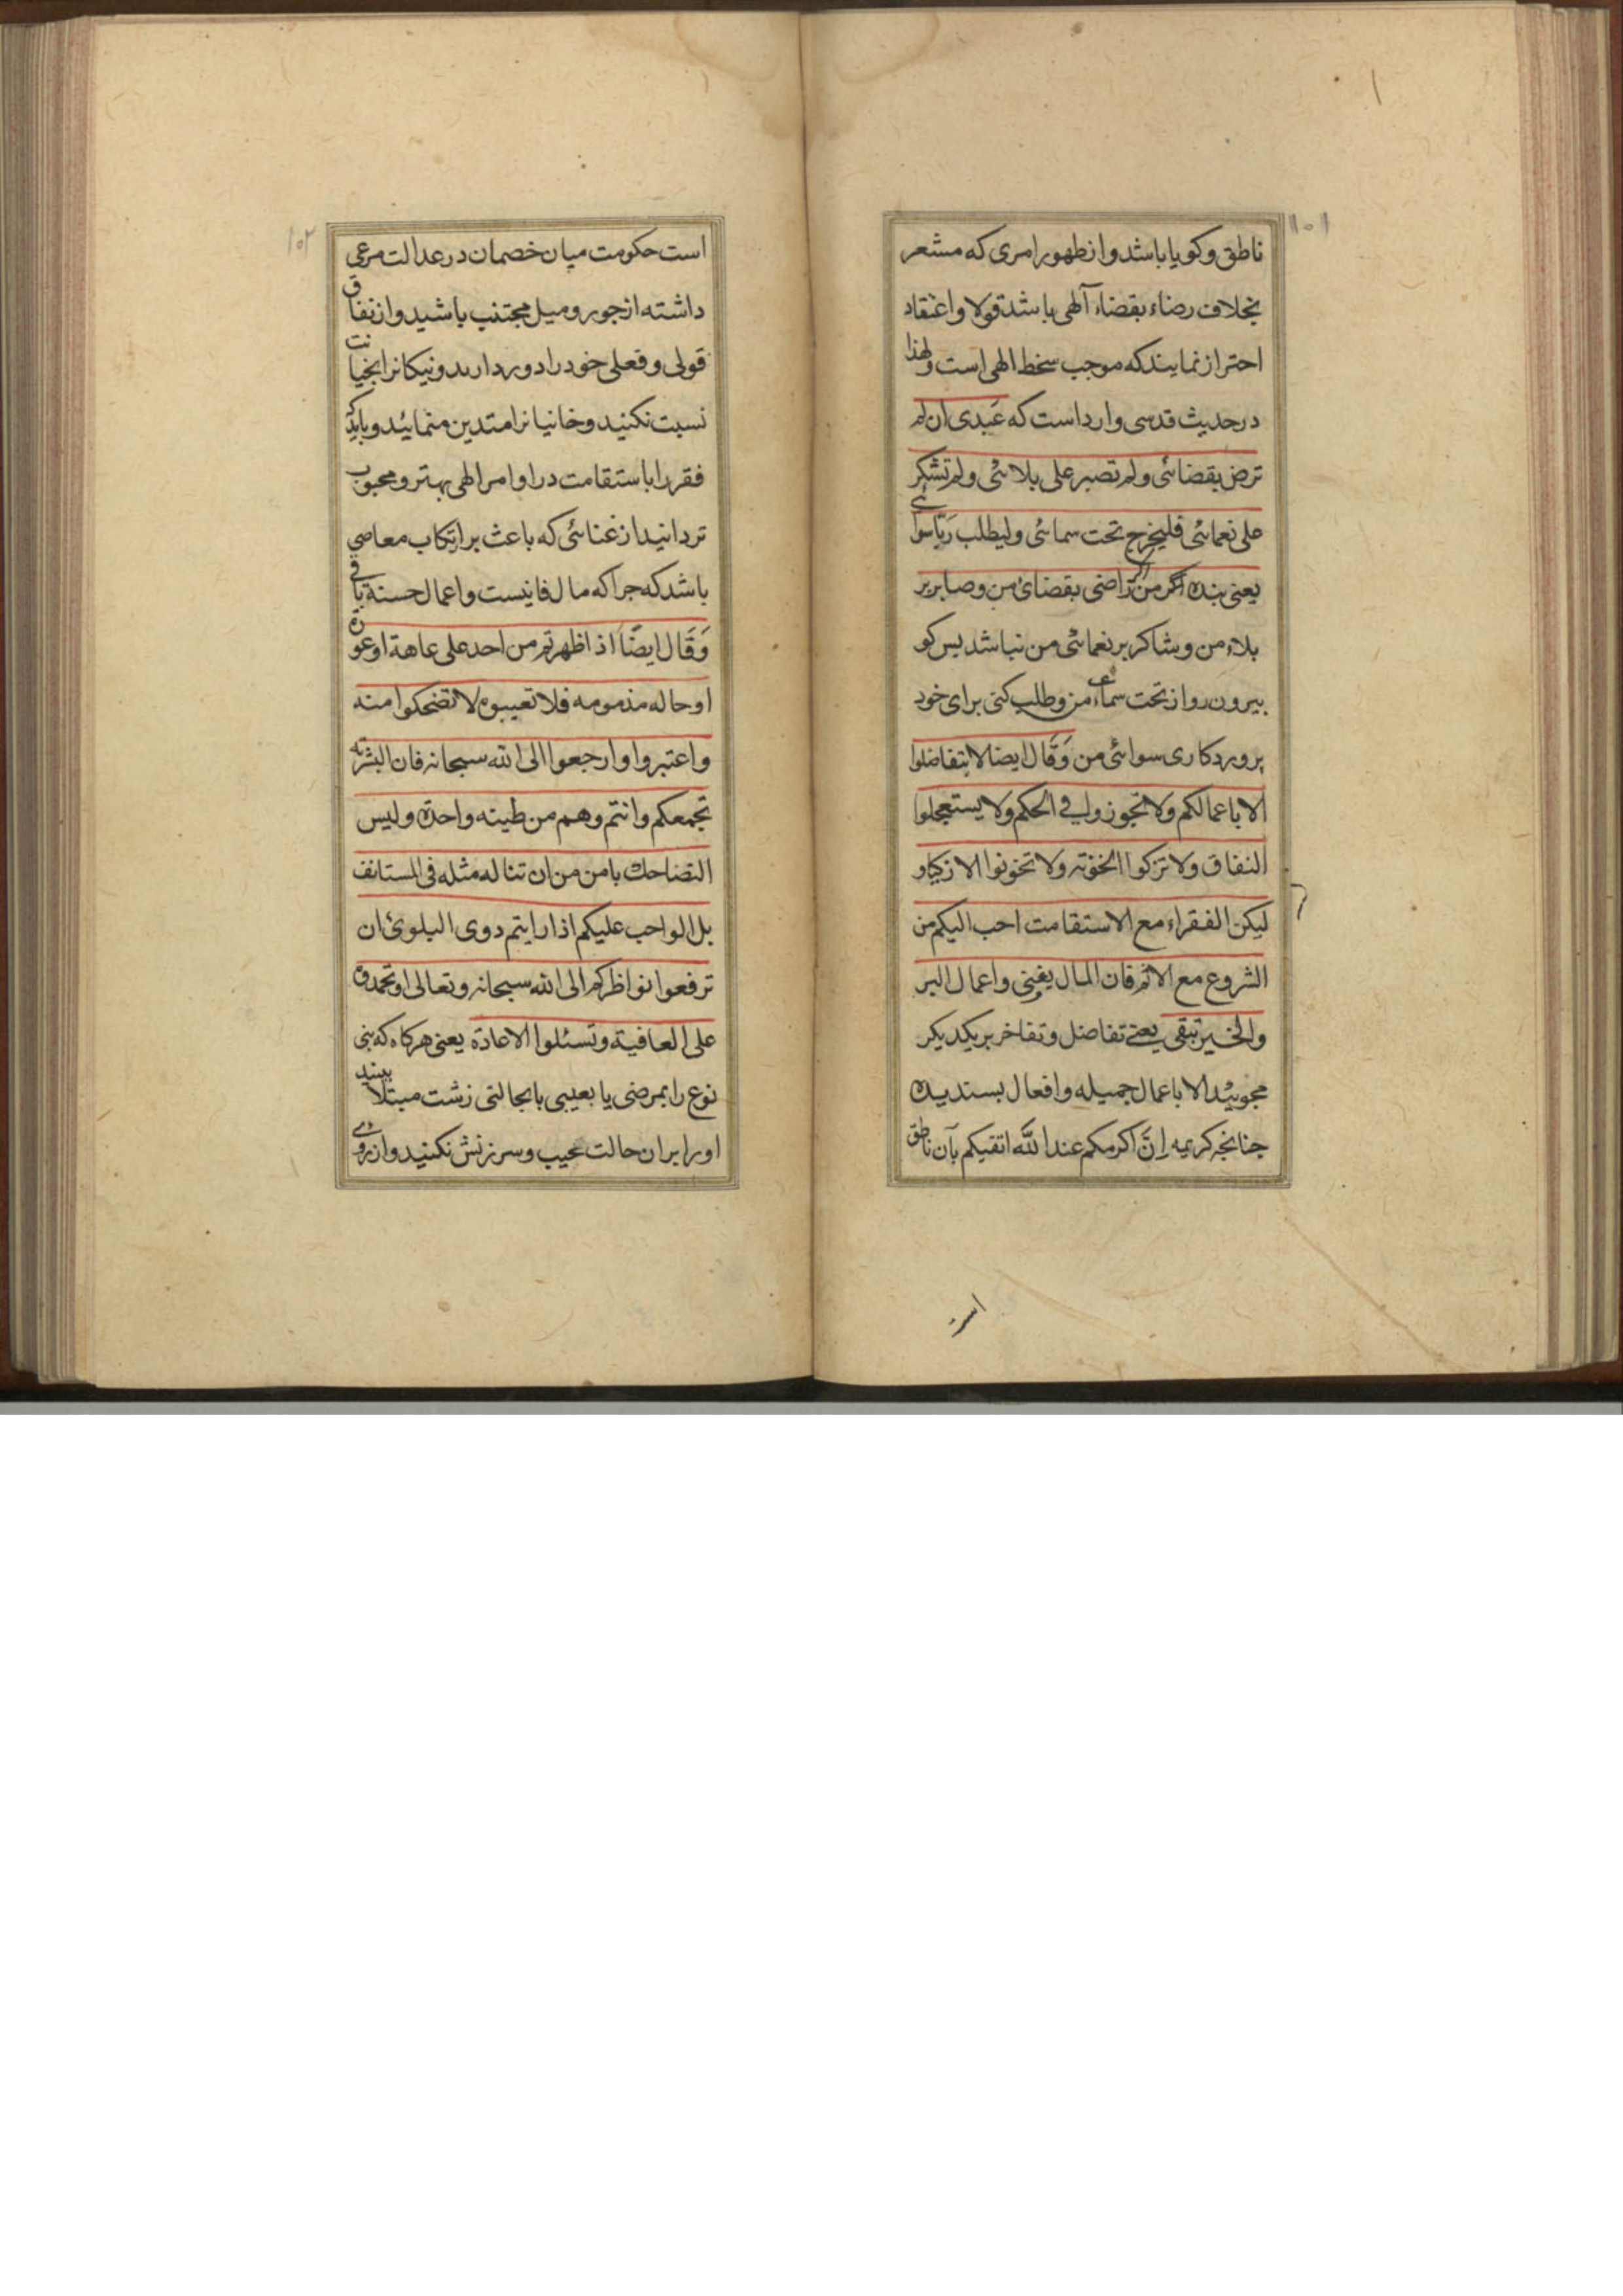 ١٠١
ناطق وكويا باشد واز ظهور امرى كه مشعر
بخلاف رضاء بقضاء آلهى باشد قولا واعتقاد
احتراز نمايند كه موجب سخط الهى است ولهذا
در حديث قدسى وارد است كه عَبدى ان لم
ترض بقضائى ولم تصبر على بلائى ولم تشكر
على نعمائى فليخرج تحت سمائى وليطلب رَبّا سوائى
يعنى بنده اكر من راضى بقضاى من وصابر بر
بلاء من وشاكر بر نعمائى من نباشد بس كو
بيرون رو از تحت سماء من وطلب كنى براى خود
پروردكارى سوائى من وَقَال ايضا لا تتفاضلوا
الا باعمالكم ولا تجوزوا في الحكم ولا يستعجلوا
النفاق ولا تزكوا الخونه ولا تخونوا الازكيا و
ليكن الفقراء مع الاستقامت احب اليكم من
الشروع مع الاثم فان المال يفنى واعمال البر
والخير تبقى يعنے تفاضل وتفاخر بر يكديكر
مجوئيد الا باعمال جميله وافعال بسنديده
جنانچه كريمه اِنَّ اكرمكم عند اللّٰه اتقيكم بآن ناطق
است
١٠٢
است حكومت ميان خصمان در عدالت مرعى
داشته از جور وميل مجتنب باشيد واز نفاق
قولى وفعلى خود را دور داريد ونيكانرا بخيانت
نسبت نكنيد وخانيانرا متدين منمائيد وبايد كه
فقر را باستقامت در اوامر الهى بهتر ومحبوب
تر دانيد از غنائى كه باعث بر ارتكاب معاصي
باشد كه جرا كه مال فانيست واعمال حسنة باقي
وَقَال ايضًا اذ اظهرتم من احد على عاهة او عورة
او حاله مذمومه فلا تعيبوه لا تضحكوا منه
واعتبروا وارجعوا الى الله سبحانه فان البشريه
تجمعكم وانتم وهم من طينه واحدة وليس
التضاحك بامن من ان تناله مثله فى المستانف
بل الواحب عليكم اذا رايتم دوى البلوئ ان
ترفعوا نواظركم الى الله سبحانه وتعالى او تحمدوه
على العافية وتسئلوا الاعادة يعنى هركاه كه بنى
نوع را بمرضى يا بعيبى يا بحالتى زشت مبتلا ببينيد
اورا بر ان حالت عيب وسرزنش نكنيد واز روے